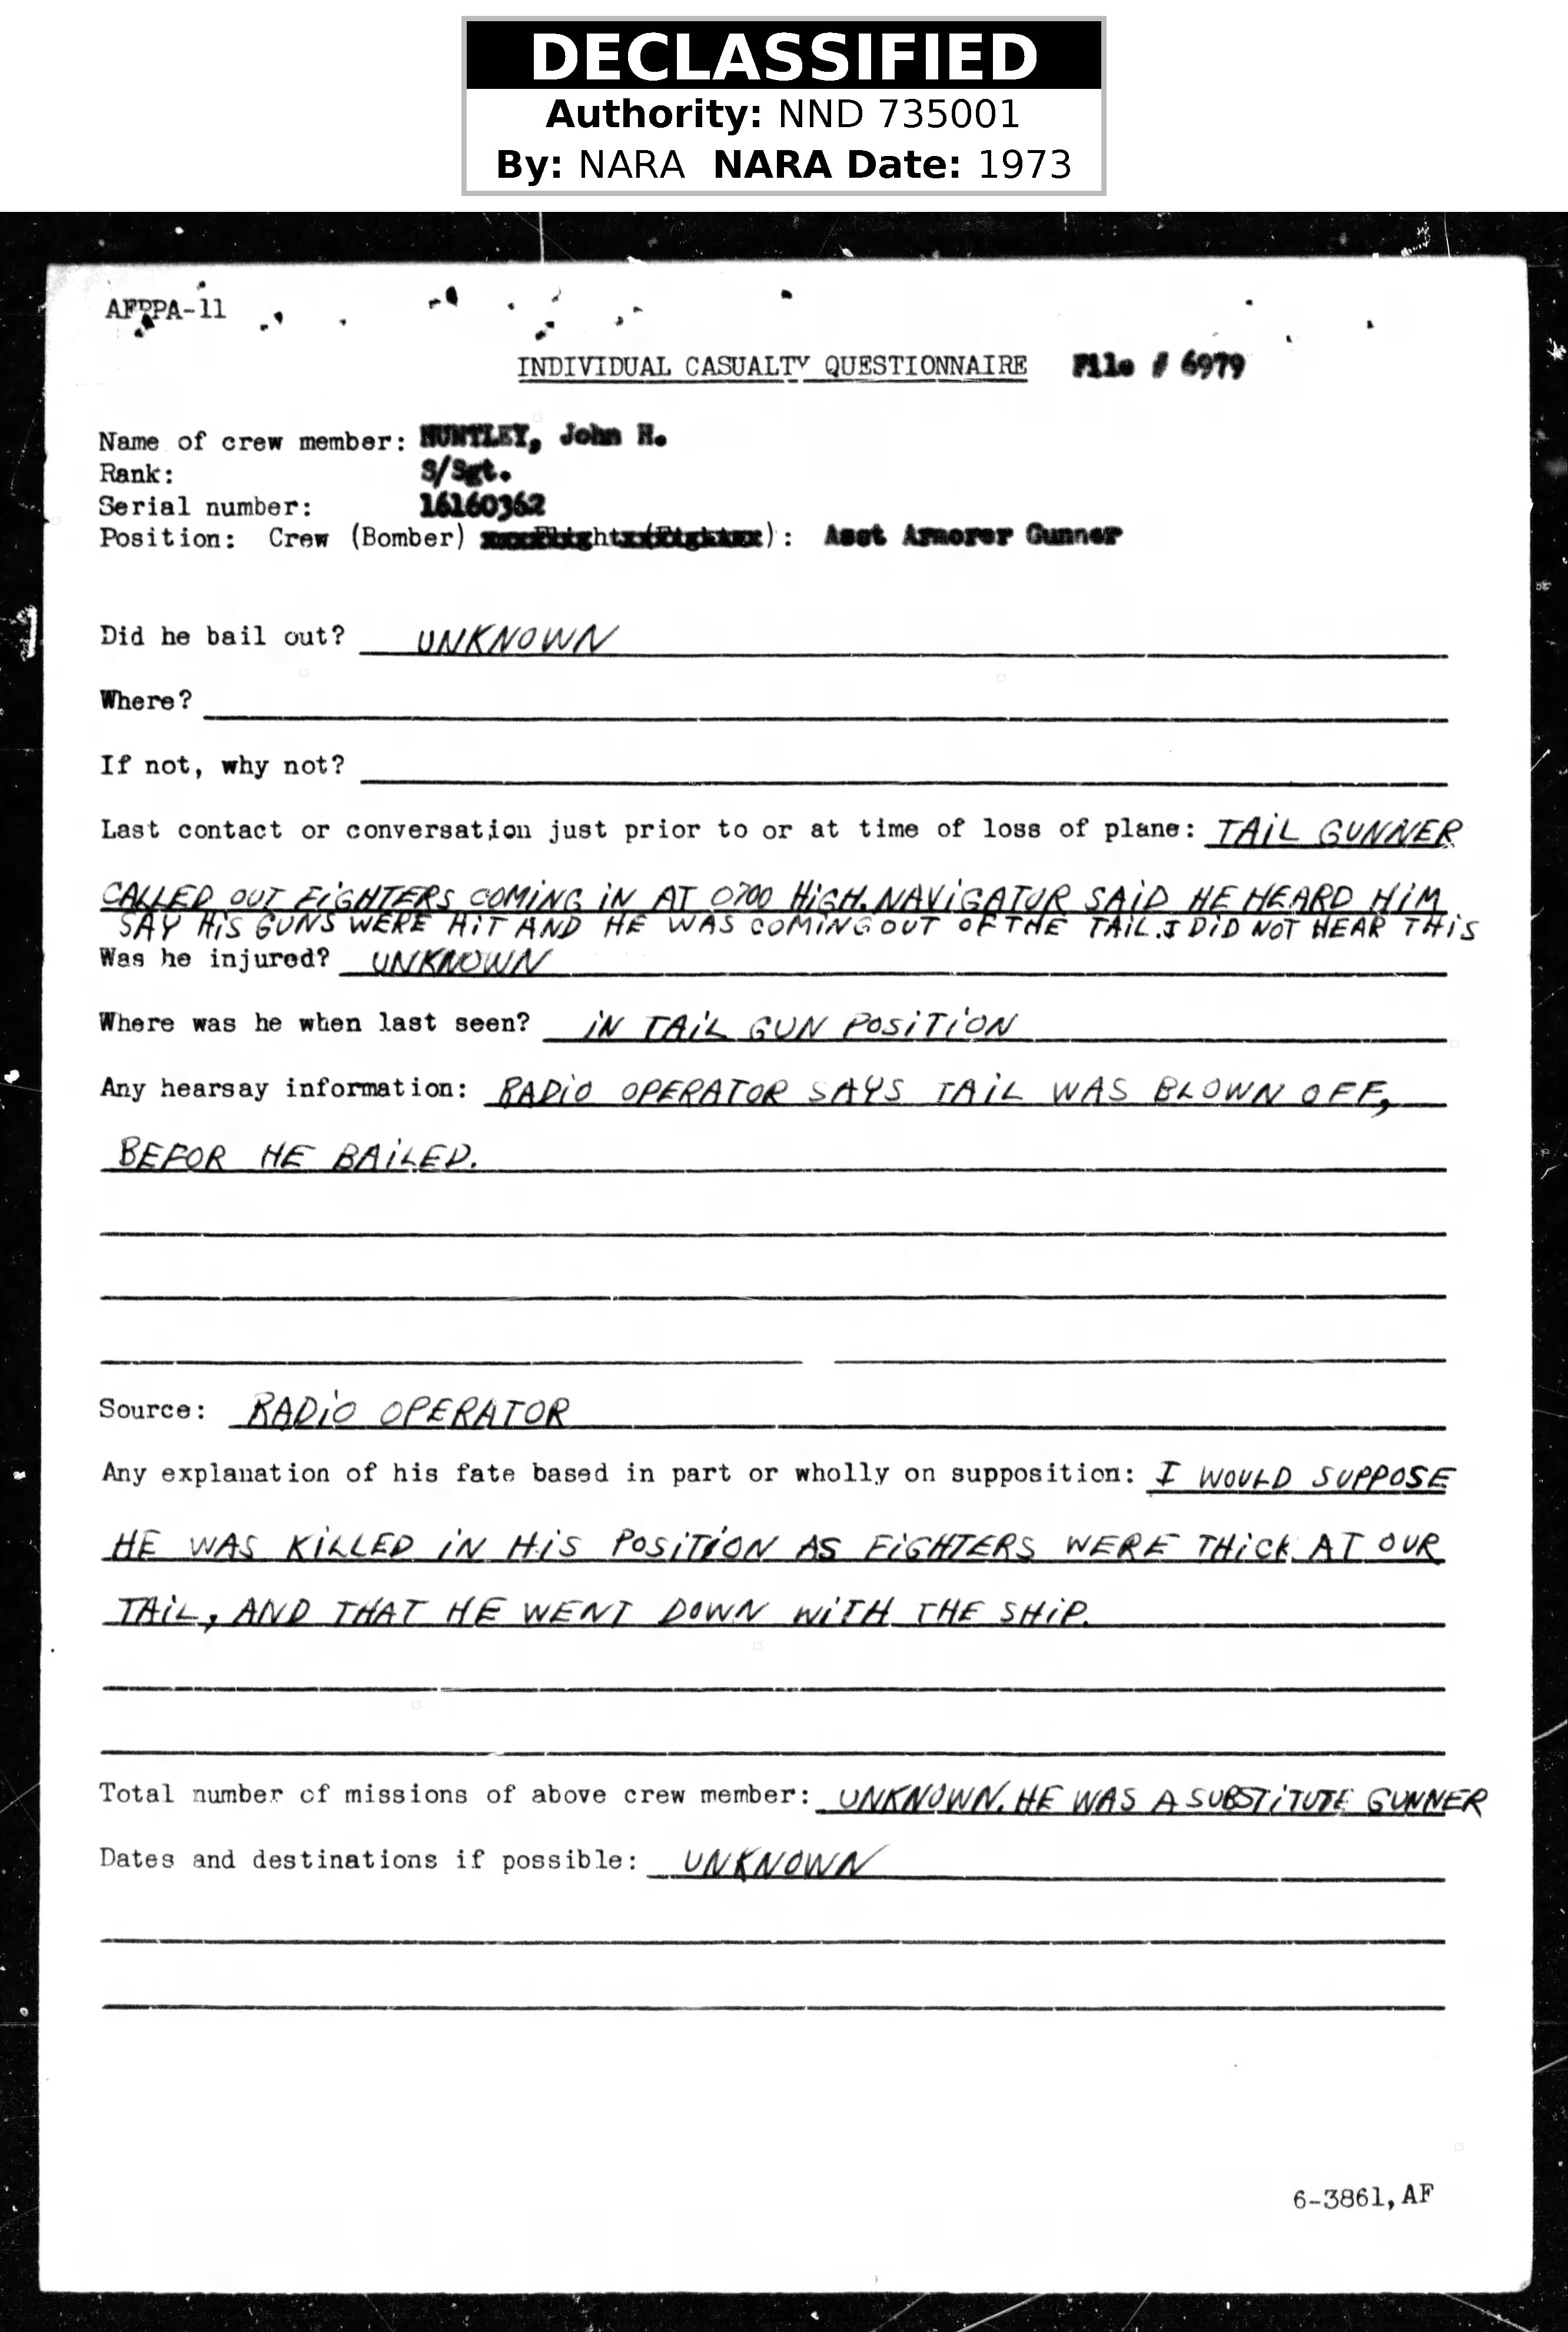 DECLASSIFIED
Authority: NND 735001
By: NARA NARA Date: 1973
AFPPA-11
INDIVIDUAL CASUALTY QUESTIONNAIRE File # 6979
Name of crew member: HUNTLEY, John H.
Rank: S/Sgt.
Serial number: 16160362
Position: Crew (Bomber) : Asst Armorer Gunner
Did he bail out? UNKNOWN
Where?
If not, why not?
Last contact or conversation just prior to or at time of loss of plane: TAIL GUNNER
CALLED OUT FIGHTERS COMING IN AT 0700 HIGH. NAVIGATOR SAID HE HEARD HIM
SAY HIS GUNS WERE HIT AND HE WAS COMING OUT OF THE TAIL. I DID NOT HEAR THIS
Was he injured? UNKNOWN
Where was he when last seen? IN TAIL GUN POSITION
Any hearsay information: RADIO OPERATOR SAYS TAIL WAS BLOWN OFF,
BEFOR HE BAILED.
Source: RADIO OPERATOR
Any explanation of his fate based in part or wholly on supposition: I WOULD SUPPOSE
HE WAS KILLED IN HIS POSITION AS FIGHTERS WERE THICK AT OUR
TAIL, AND THAT HE WENT DOWN WITH THE SHIP.
Total number of missions of above crew member: UNKNOWN. HE WAS A SUBSTITUTE GUNNER
Dates and destinations if possible: UNKNOWN
6-3861, AF